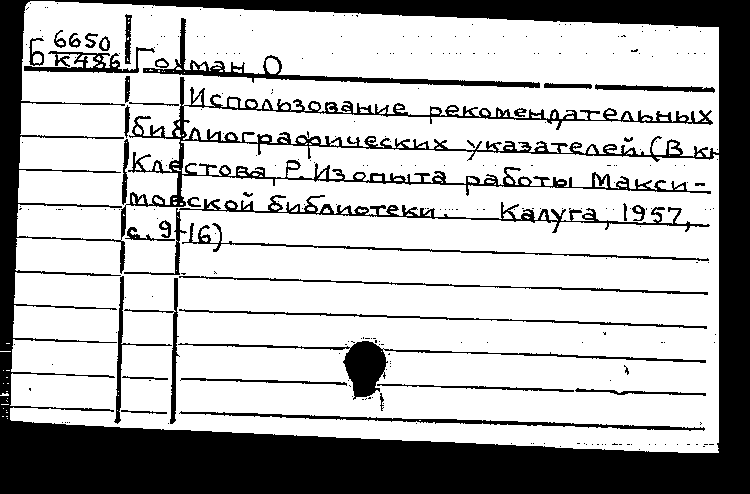 Б 6650
К486 Гохман, О
Использование рекомендательных
библиографических указателей. (В кн
Клестова, Р. Из опыта работы Макси-
мовской библиотеки. Калуга, 1957,
с. 9-16).